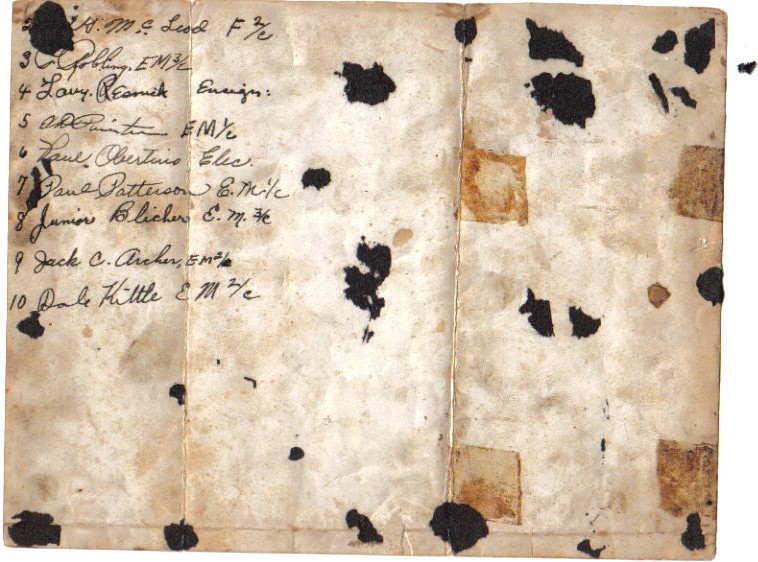 2 H. Mc Leod F 2/c
3 Gobling, EM3/c
4 Lavy. Resnick Ensign:
5 EM1/c
6 Paul Obertino Elec.
7 Paul Patterson E.M.1/c
8 Junior Blicher E.M. 3/c
9 Jack C. Archer, EM2/c
10 Dale Kittle EM 2/c